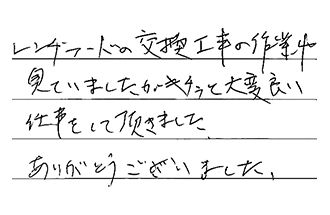 レンジフードの交換工事の作業中
見ていましたがキチッと大変良い
仕事をして頂きました。
ありがとうございました。